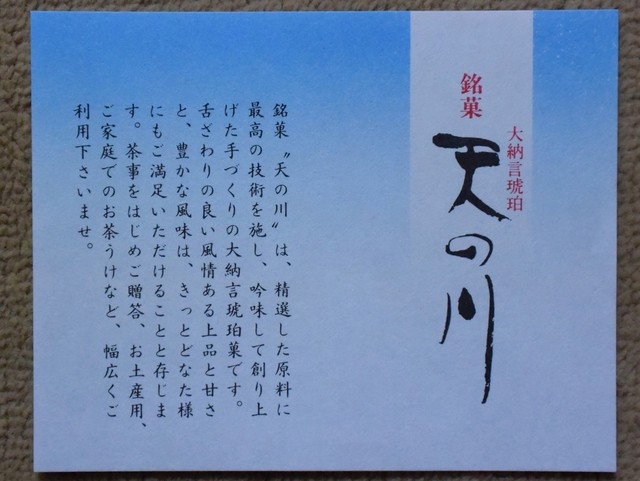 大納言琥珀
銘菓
天の川
銘菓〝天の川〟は、精選した原料に
最高の技術を施し、吟味して創り上
げた手づくりの大納言琥珀菓です。
舌ざわりの良い風情ある上品と甘さ
と、豊かな風味は、きっとどなた様
にもご満足いただけることと存じま
す。茶事をはじめご贈答、お土産用、
ご家庭でのお茶うけなど、幅広くご
利用下さいませ。